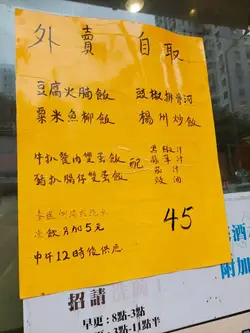 外賣 自取
豆腐火腩飯 豉椒排骨河
粟米魚柳飯 楊州炒飯
牛扒餐肉雙蛋飯 配 黑椒汁
豬扒腸仔雙蛋飯 茄汁
豉油
冻飲另加5元
45
中午12時後供應
招請
早更:8點-3點
3點-11點半
酒
附加